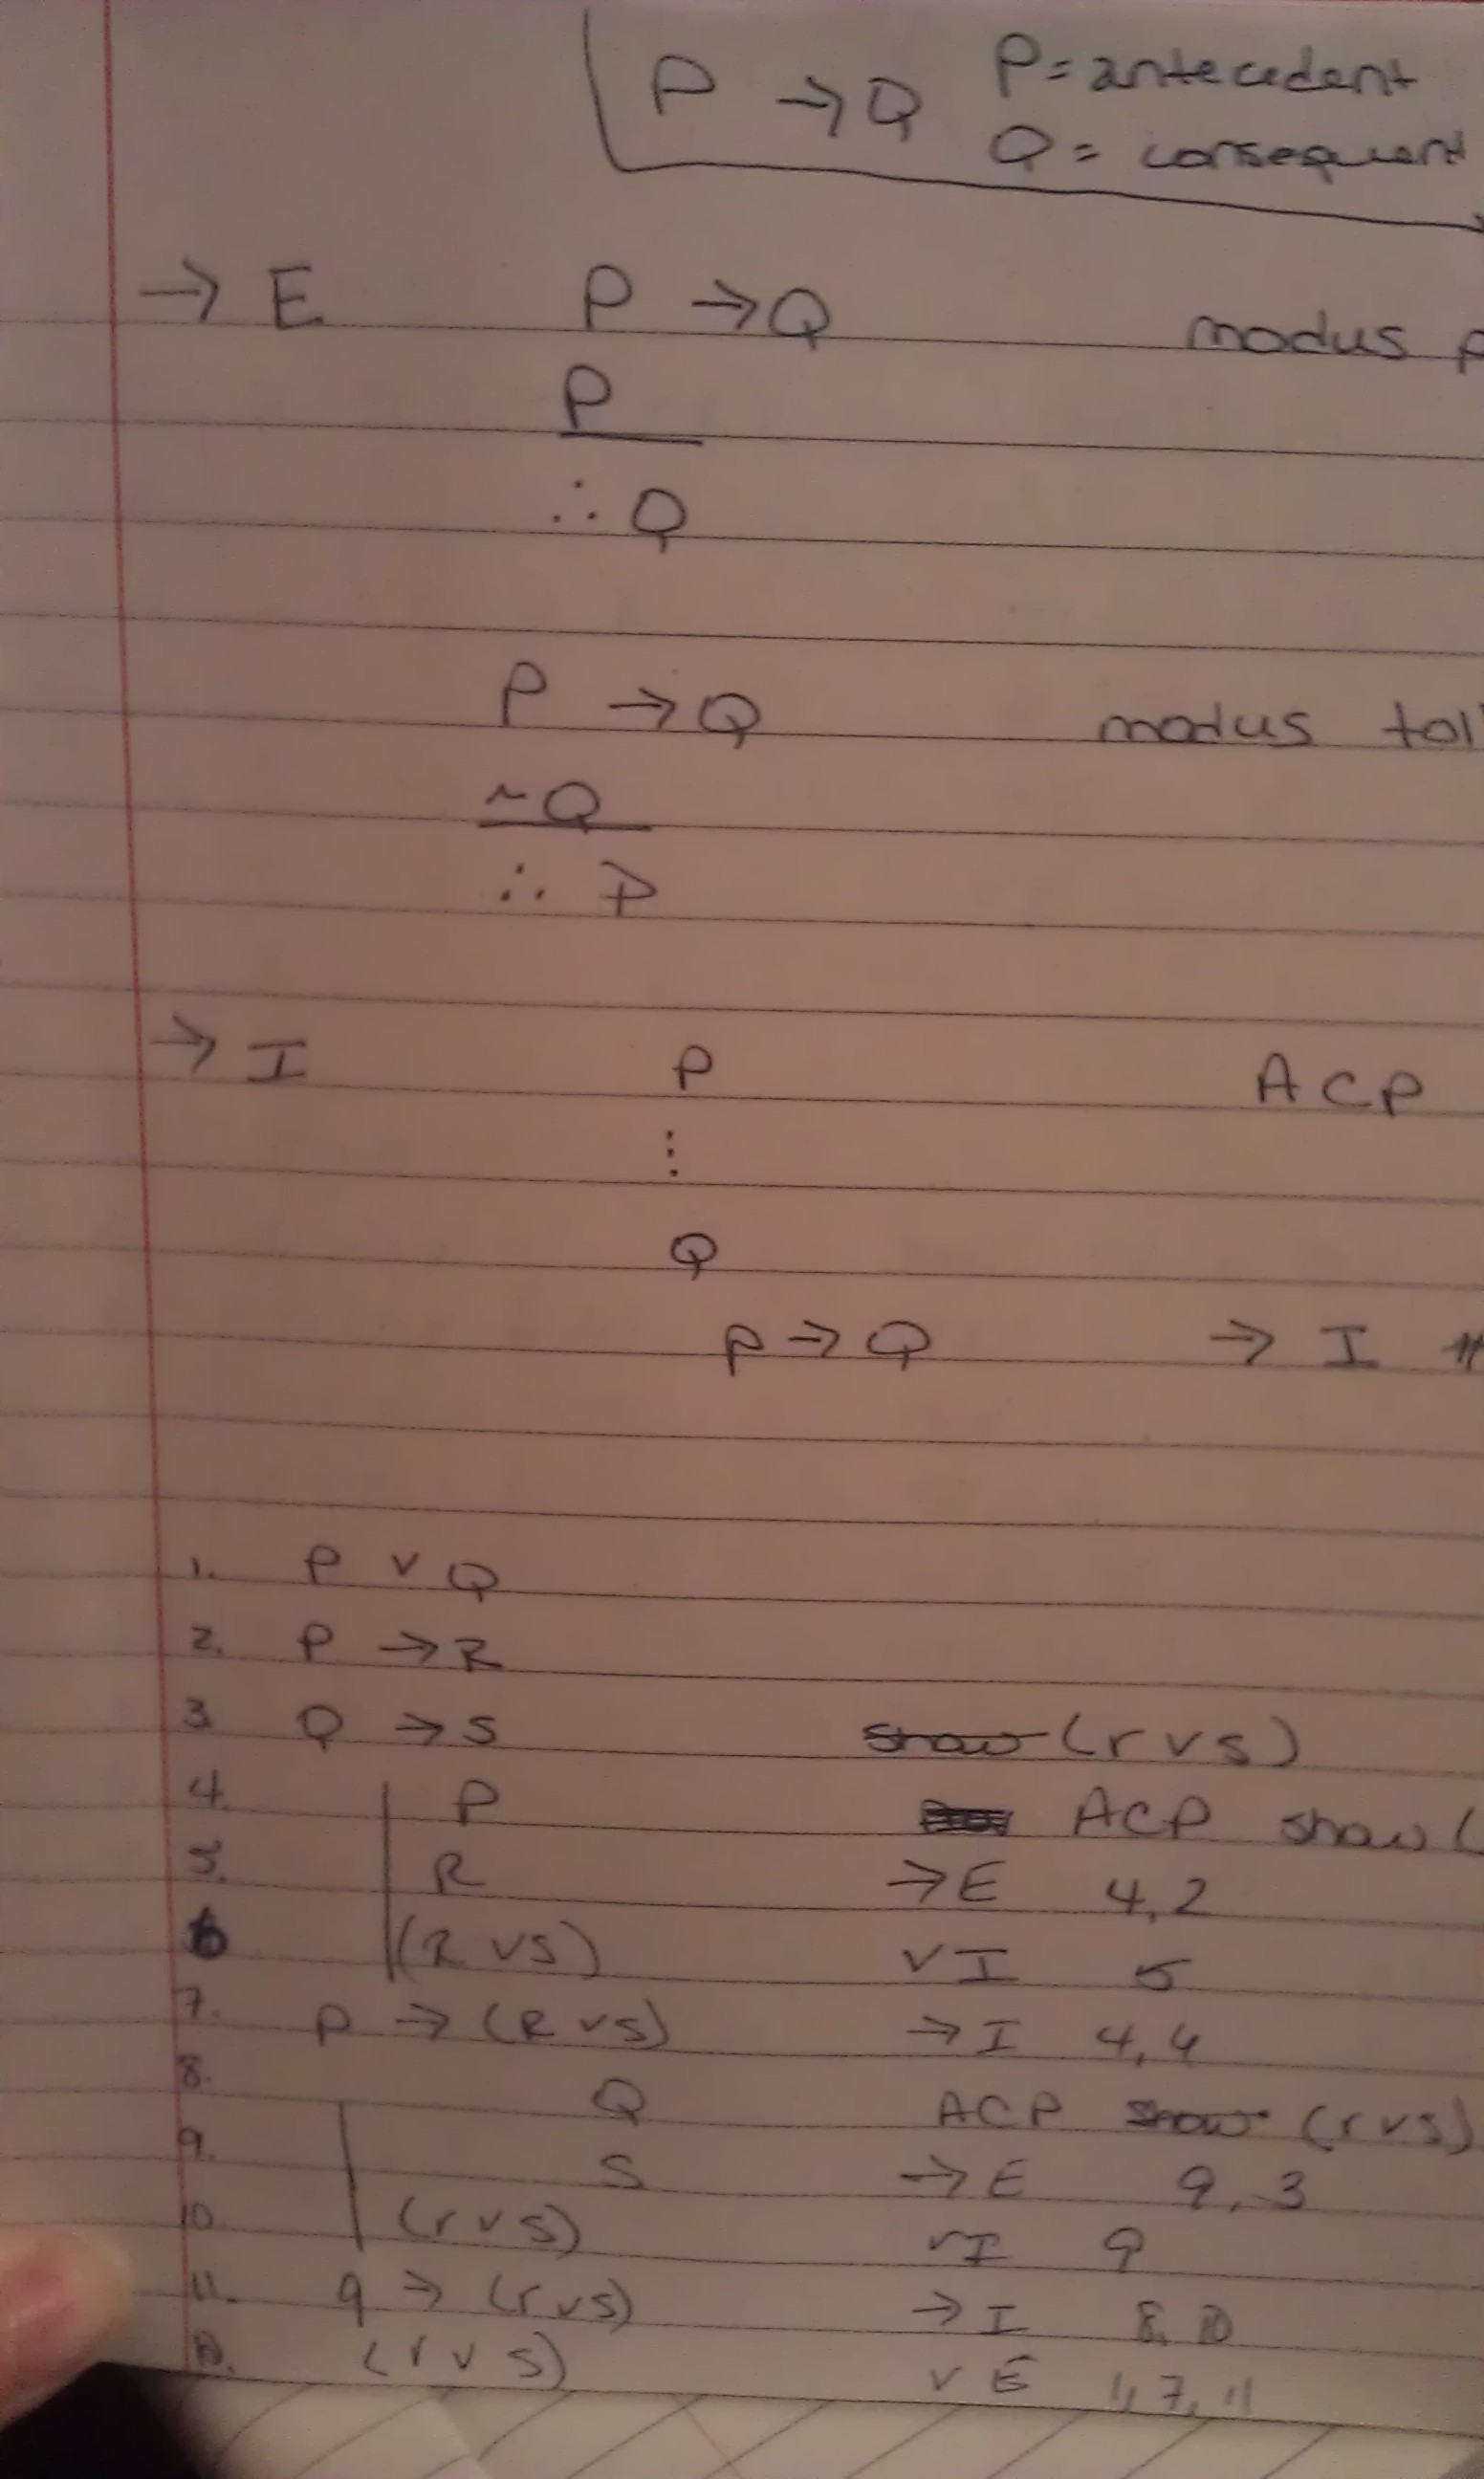 P → Q P = antecedent
Q = consequent
→ E P → Q modus p
P
∴ Q
P → Q modus tol
~Q
∴ P
→ I P ACP
⋮
Q
P → Q → I
1. P v Q
2. P → R
3 Q → S show (r v s)
4. P ACP show (
5. R → E 4,2
6 (R v S) v I 5
7. P → (R v S) → I 4,6
8. Q ACP show (r v s)
9. S → E 9, 3
10 (r v s) v I 9
11. q → (r v s) → I 8, 10
12. (r v s) v E 1, 7, 11